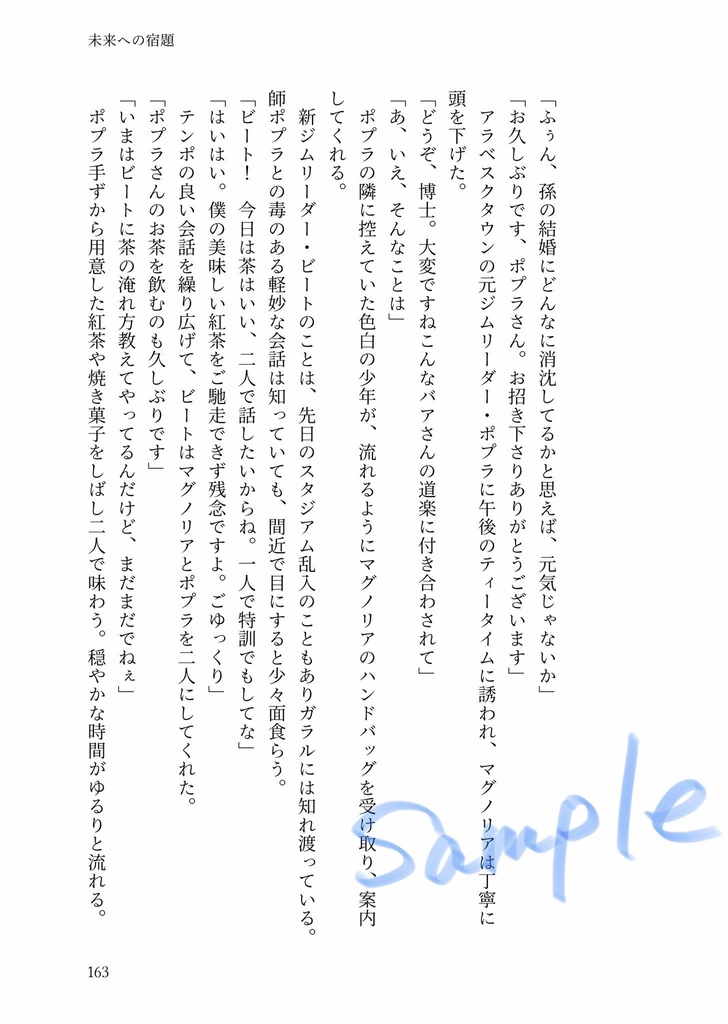 未来への宿題
「ふぅん、孫の結婚にどんなに消沈してるかと思えば、元気じゃないか」
「お久しぶりです、ポプラさん。お招き下さりありがとうございます」
アラベスクタウンの元ジムリーダー・ポプラに午後のティータイムに誘われ、マグノリアは丁寧に
頭を下げた。
「どうぞ、博士。大変ですねこんなバアさんの道楽に付き合わされて」
「あ、いえ、そんなことは」
ポプラの隣に控えていた色白の少年が、流れるようにマグノリアのハンドバッグを受け取り、案内
してくれる。
新ジムリーダー・ビートのことは、先日のスタジアム乱入のこともありガラルには知れ渡っている。
師ポプラとの毒のある軽妙な会話は知っていても、間近で目にすると少々面食らう。
「ビート！　今日は茶はいい、二人で話したいからね。一人で特訓でもしてな」
「はいはい。僕の美味しい紅茶をご馳走できず残念ですよ。ごゆっくり」
テンポの良い会話を繰り広げて、ビートはマグノリアとポプラを二人にしてくれた。
「ポプラさんのお茶を飲むのも久しぶりです」
「いまはビートに茶の淹れ方教えてやってるんだけど、まだまだでねぇ」
ポプラ手ずから用意した紅茶や焼き菓子をしばし二人で味わう。穏やかな時間がゆるりと流れる。
163
Sample